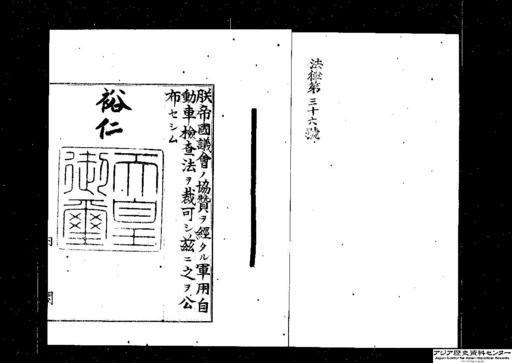 法律第三十六號
朕帝國議會ノ協贊ヲ經タル軍用自
動車檢査法ヲ裁可シ茲ニ之ヲ公
布セシム
裕仁
天皇
御璽
アジア歴史資料センター
Japan Center for Asian Historical Records